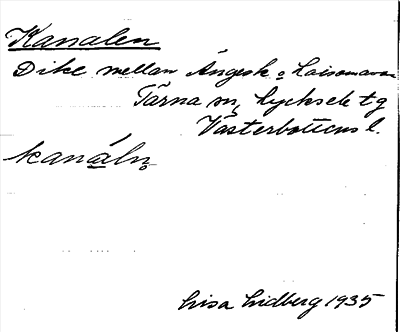 Kanalen
Dike mellan Ängesk. o Laisomavan
Tärna sn, Lycksele tg
Västerbottens l.
kanáln̥
Lisa Lidberg 1935